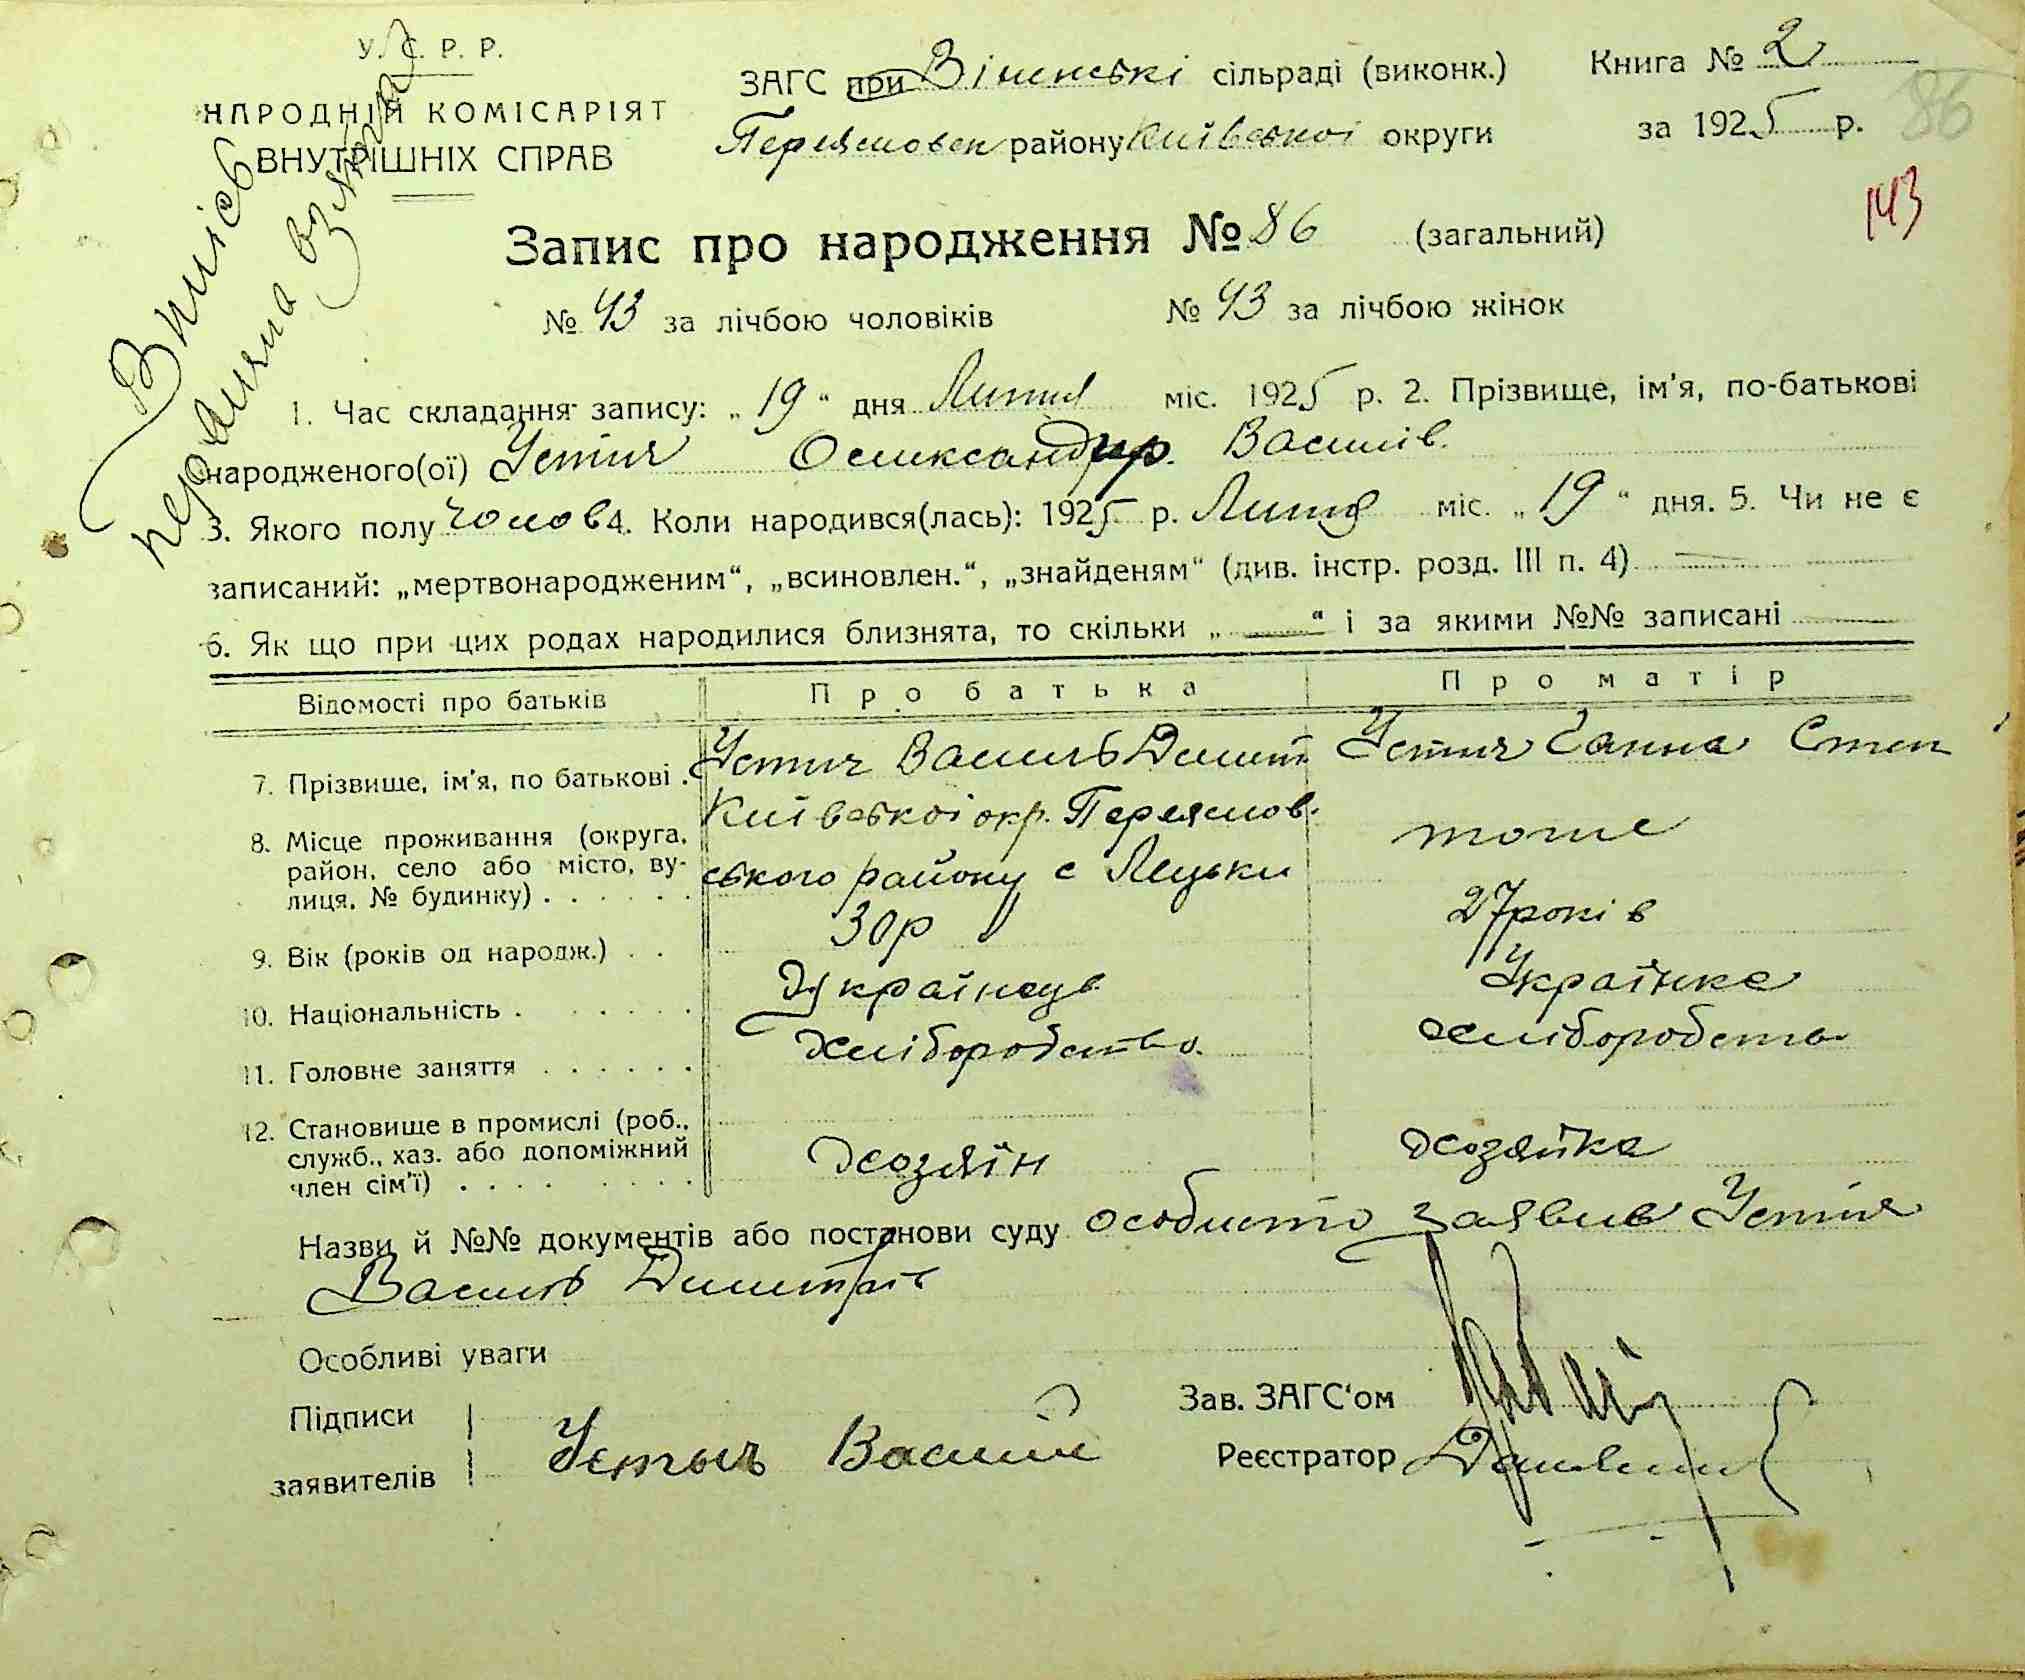 У. С. Р. Р.
НАРОДНІЙ КОМІСАРІЯТ
ВНУТРІШНІХ СПРАВ
ЗАГС при сільраді (виконк.)
району Київської округи
Книга № 2
за 1925 р.
86
143
Запис про народження № 86 (загальний)
№ 43 за лічбою чоловіків № 43 за лічбою жінок
1. Час складання запису: „19“ дня Липня міс. 1925 р. 2. Прізвище, ім'я, по-батькові
народженого(ої) Устич Олександр Василів.
3. Якого полу чолов 4. Коли народився(лась): 1925 р. Липня міс. „19“ дня. 5. Чи не є
записаний: „мертвонародженим“, „всиновлен.“, „знайденям“ (див. інстр. розд. III п. 4)
6. Як що при цих родах народилися близнята, то скільки „—“ і за якими №№ записані
Відомості про батьків Про батька Про матір
7. Прізвище, ім'я, по батькові . Устич Василь Димит Устич Ганна Степ
8. Місце проживання (округа, район, село або місто, вулиця, № будинку) . . . . . .
Київської окр. Переяслов.
ського району с Лецьки
тоже
9. Вік (років од народж.) . . 30р 27 років
10. Національність . . . . . . Українець Українка
11. Головне заняття . . . . . . хліборобство. хлібороботво
12. Становище в промислі (роб., служб., хаз. або допоміжний член сім'ї) . . . . . . . .
хозяїн хозяйка
Назви й №№ документів або постанови суду особисто заявив Устич
Василь Димитрів
Особливі уваги
Підписи
заявителів Устыч Василій
Зав. ЗАГС'ом
Реєстратор